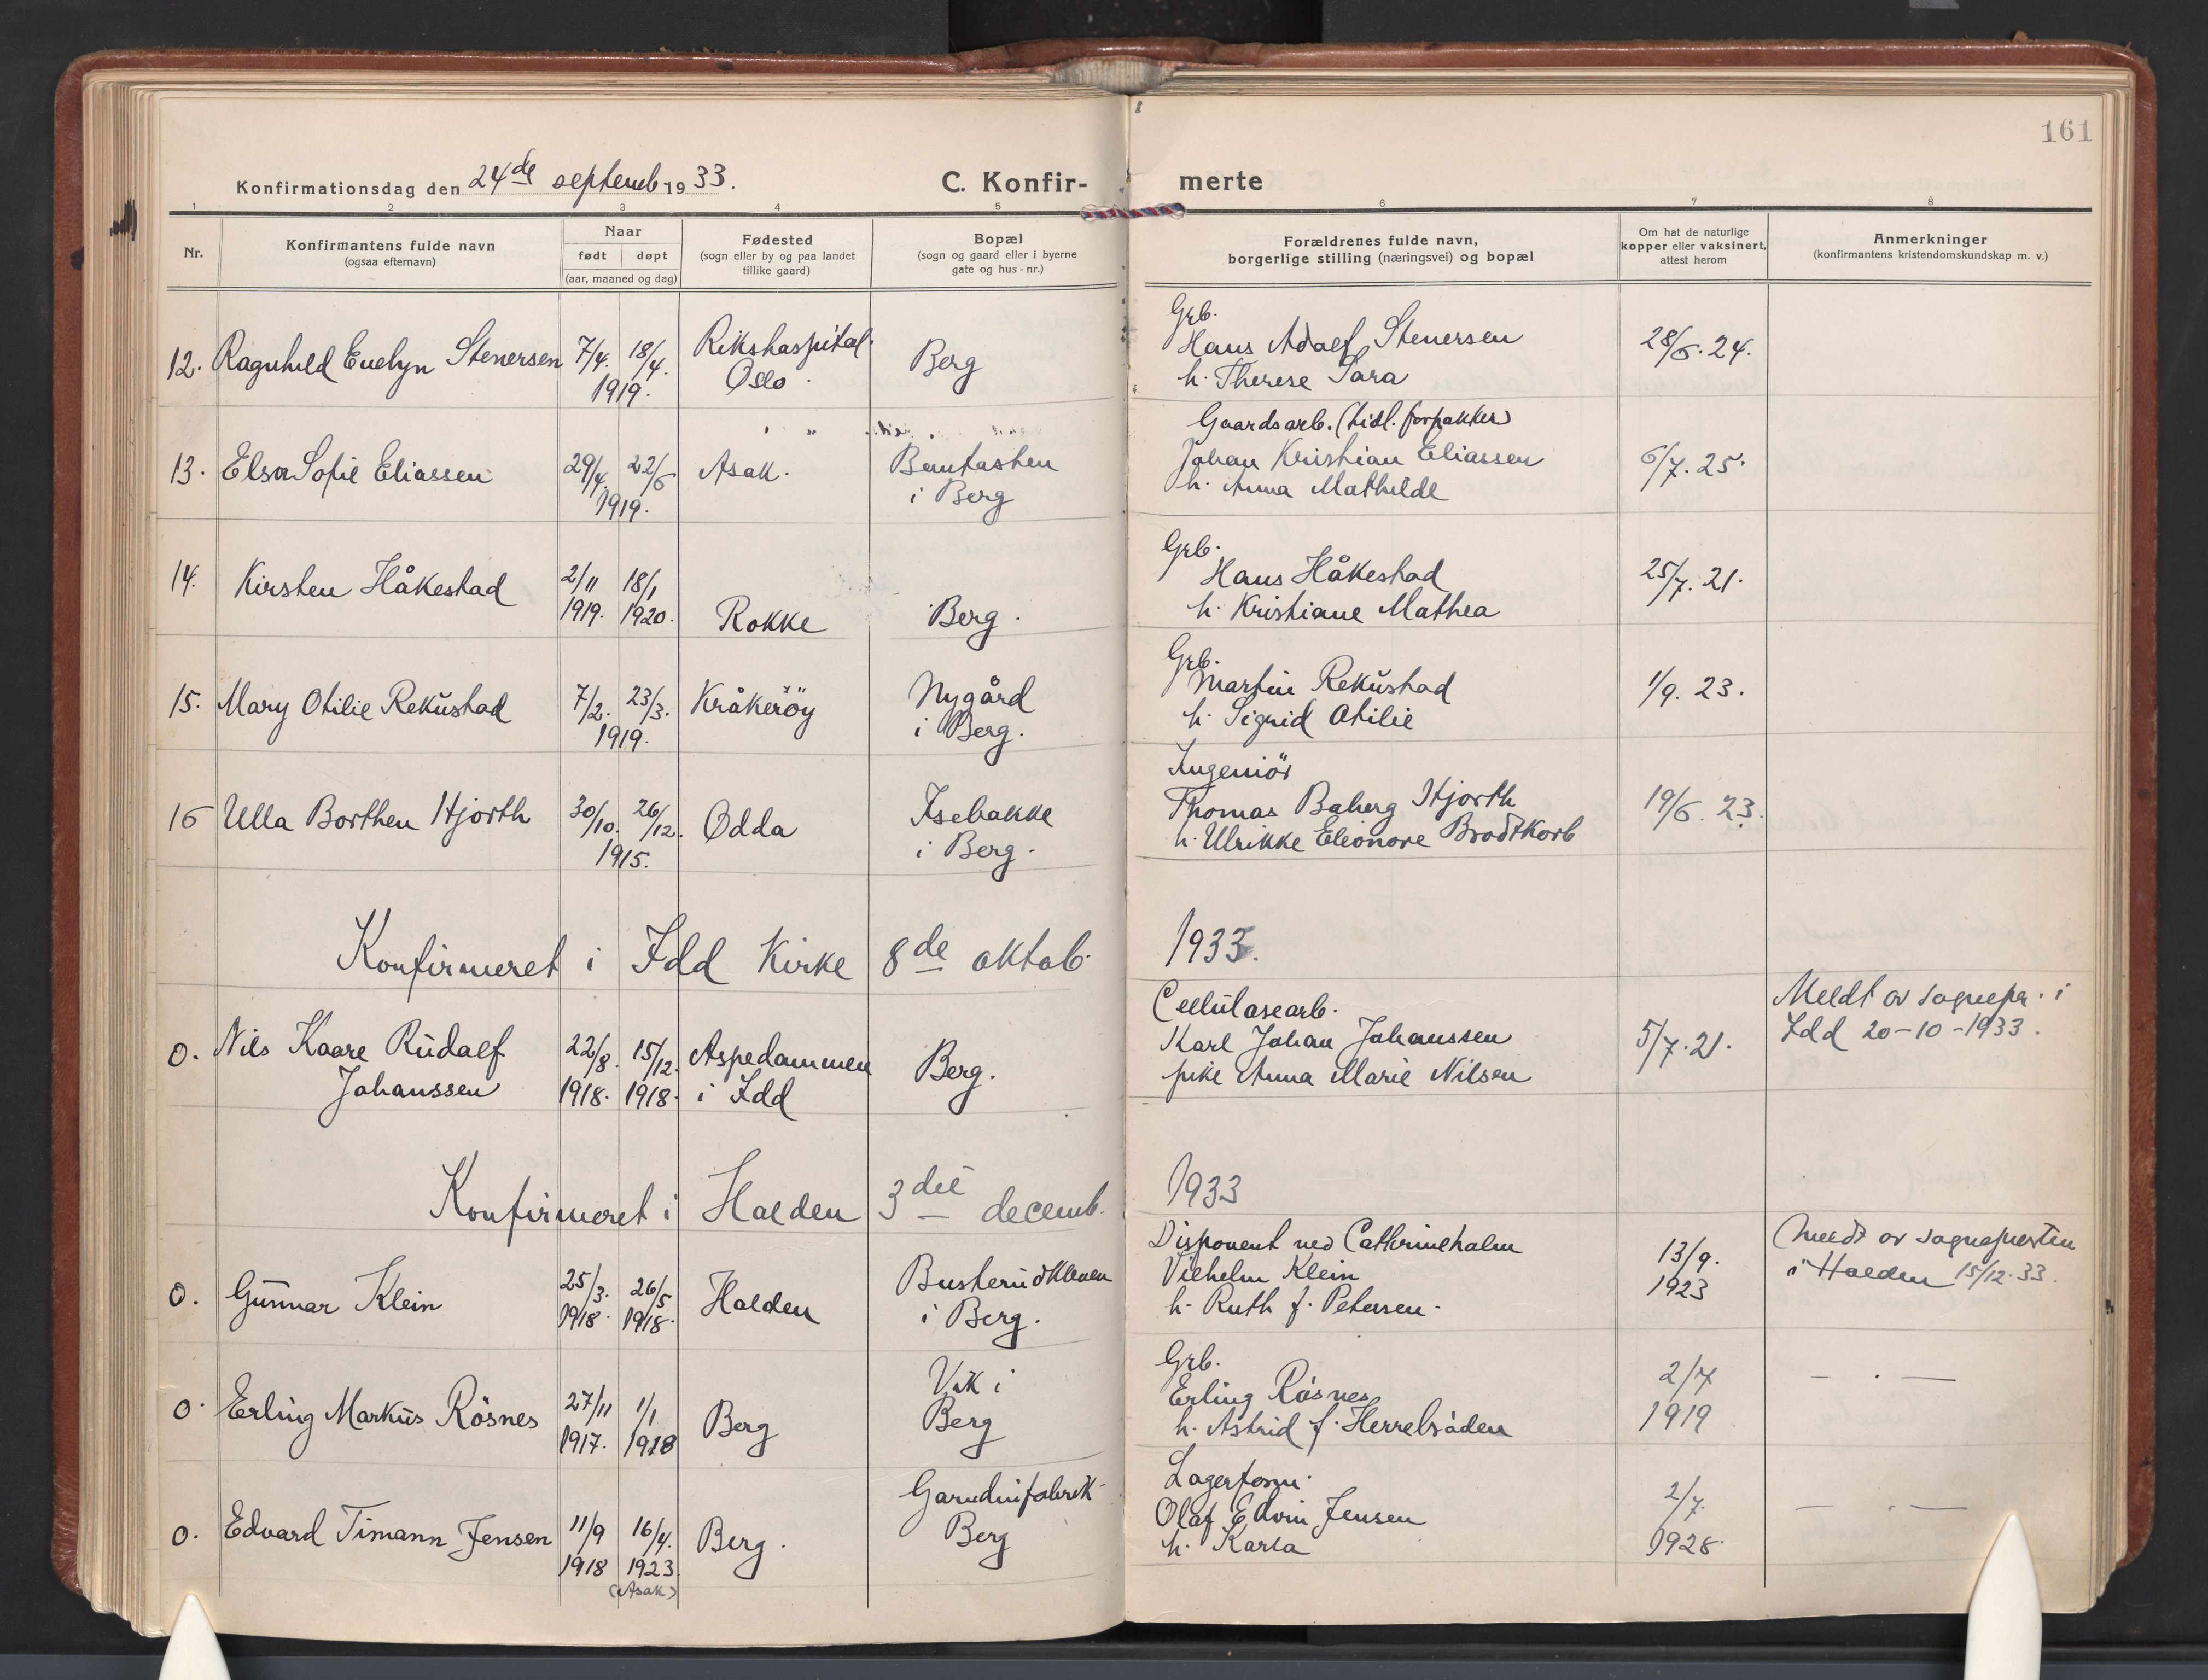 161
Konfirmationsdag den 24de septemb. 1933.
C. Konfir-merte
1 2 3 4 5 6 7 8
Nr.
Konfirmantens fulde navn
(ogsaa efternavn)
Naar
født døpt
(aar, maaned og dag)
Fødested
(sogn eller by og paa landet
tillike gaard)
Bopæl
(sogn og gaard eller i byerne
gate og hus-nr.)
Forældrenes fulde navn,
borgerlige stilling (næringsvei) og bopæl
Om hat de naturlige
kopper eller vaksinert,
attest herom
Anmerkninger
(konfirmantens kristendomskundskap m. v.)
Grb.
12. Ragnhild Evelyn Stenersen 7/4. 18/4. Rikshospital. Berg Hans Adolf Stenersen 28/6. 24.
1919. Oslo. h. Therese Sara
Gaardsarb. (tidl. forpakter)
13. Elsa Sofie Eliassen 29/4. 22/6 Asak. Bautasten Johan Kristian Eliassen 6/7. 25.
1919. i Berg h. Anna Mathilde
Grb.
14. Kirsten Håkestad 2/11 18/1 Hans Håkestad 25/7. 21.
1919. 1920. Rokke Berg. h. Kristiane Mathea
Grb.
15. Mary Otilie Rekustad 7/2. 23/3. Kråkeröy Nygård Martin Rekustad 1/9. 23.
1919. i Berg. h. Sigrid Otilie
Ingeniör
16 Ulla Borthen Hjorth 30/10. 26/12. Odda Isebakke Thomas Boberg Hjorth 19/6. 23.
1915. i Berg. h. Ulrikke Eleonore Brodtkorb
Konfirmeret i Idd Kirke 8de oktob. 1933.
Cellulosearb. Meldt av sognepr. i
0. Nils Kaare Rudolf 22/8. 15/12. Aspedammen Berg. Karl Johan Johanssen 5/7. 21. Idd 20-10-1933.
Johanssen 1918. 1918. i Idd pike Anna Marie Nilsen
Konfirmeret i Halden 3die decemb. 1933
Disponent ved Cathrineholm Meldt av sognepresten
0. Gunnar Klein 25/3. 26/5 Halden Busterudkleven Vilhelm Klein 13/9. i Halden 15/12. 33.
1918. 1918. i Berg. h. Ruth f. Petersen. 1923
Vik i Grb.
0. Erling Markus Rösnes 27/11 1/1 Berg Berg Erling Rösnes 2/7 — . —
1917. 1918 h. Astrid f. Herrebröden 1919
Gardinfabrik Lagerform.
0. Edvard Timann Jensen 11/9 16/4. Berg. Berg Olaf Edvin Jensen 2/7. — . —
1918 1923 h. Karla 1928.
(Asak)